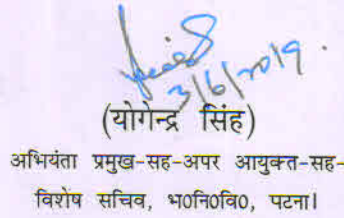 3/6/2019.
(योगेन्द्र सिंह)
अभियंता प्रमुख-सह-अपर आयुक्त-सह-
विशेष सचिव, भ0नि0वि0, पटना।